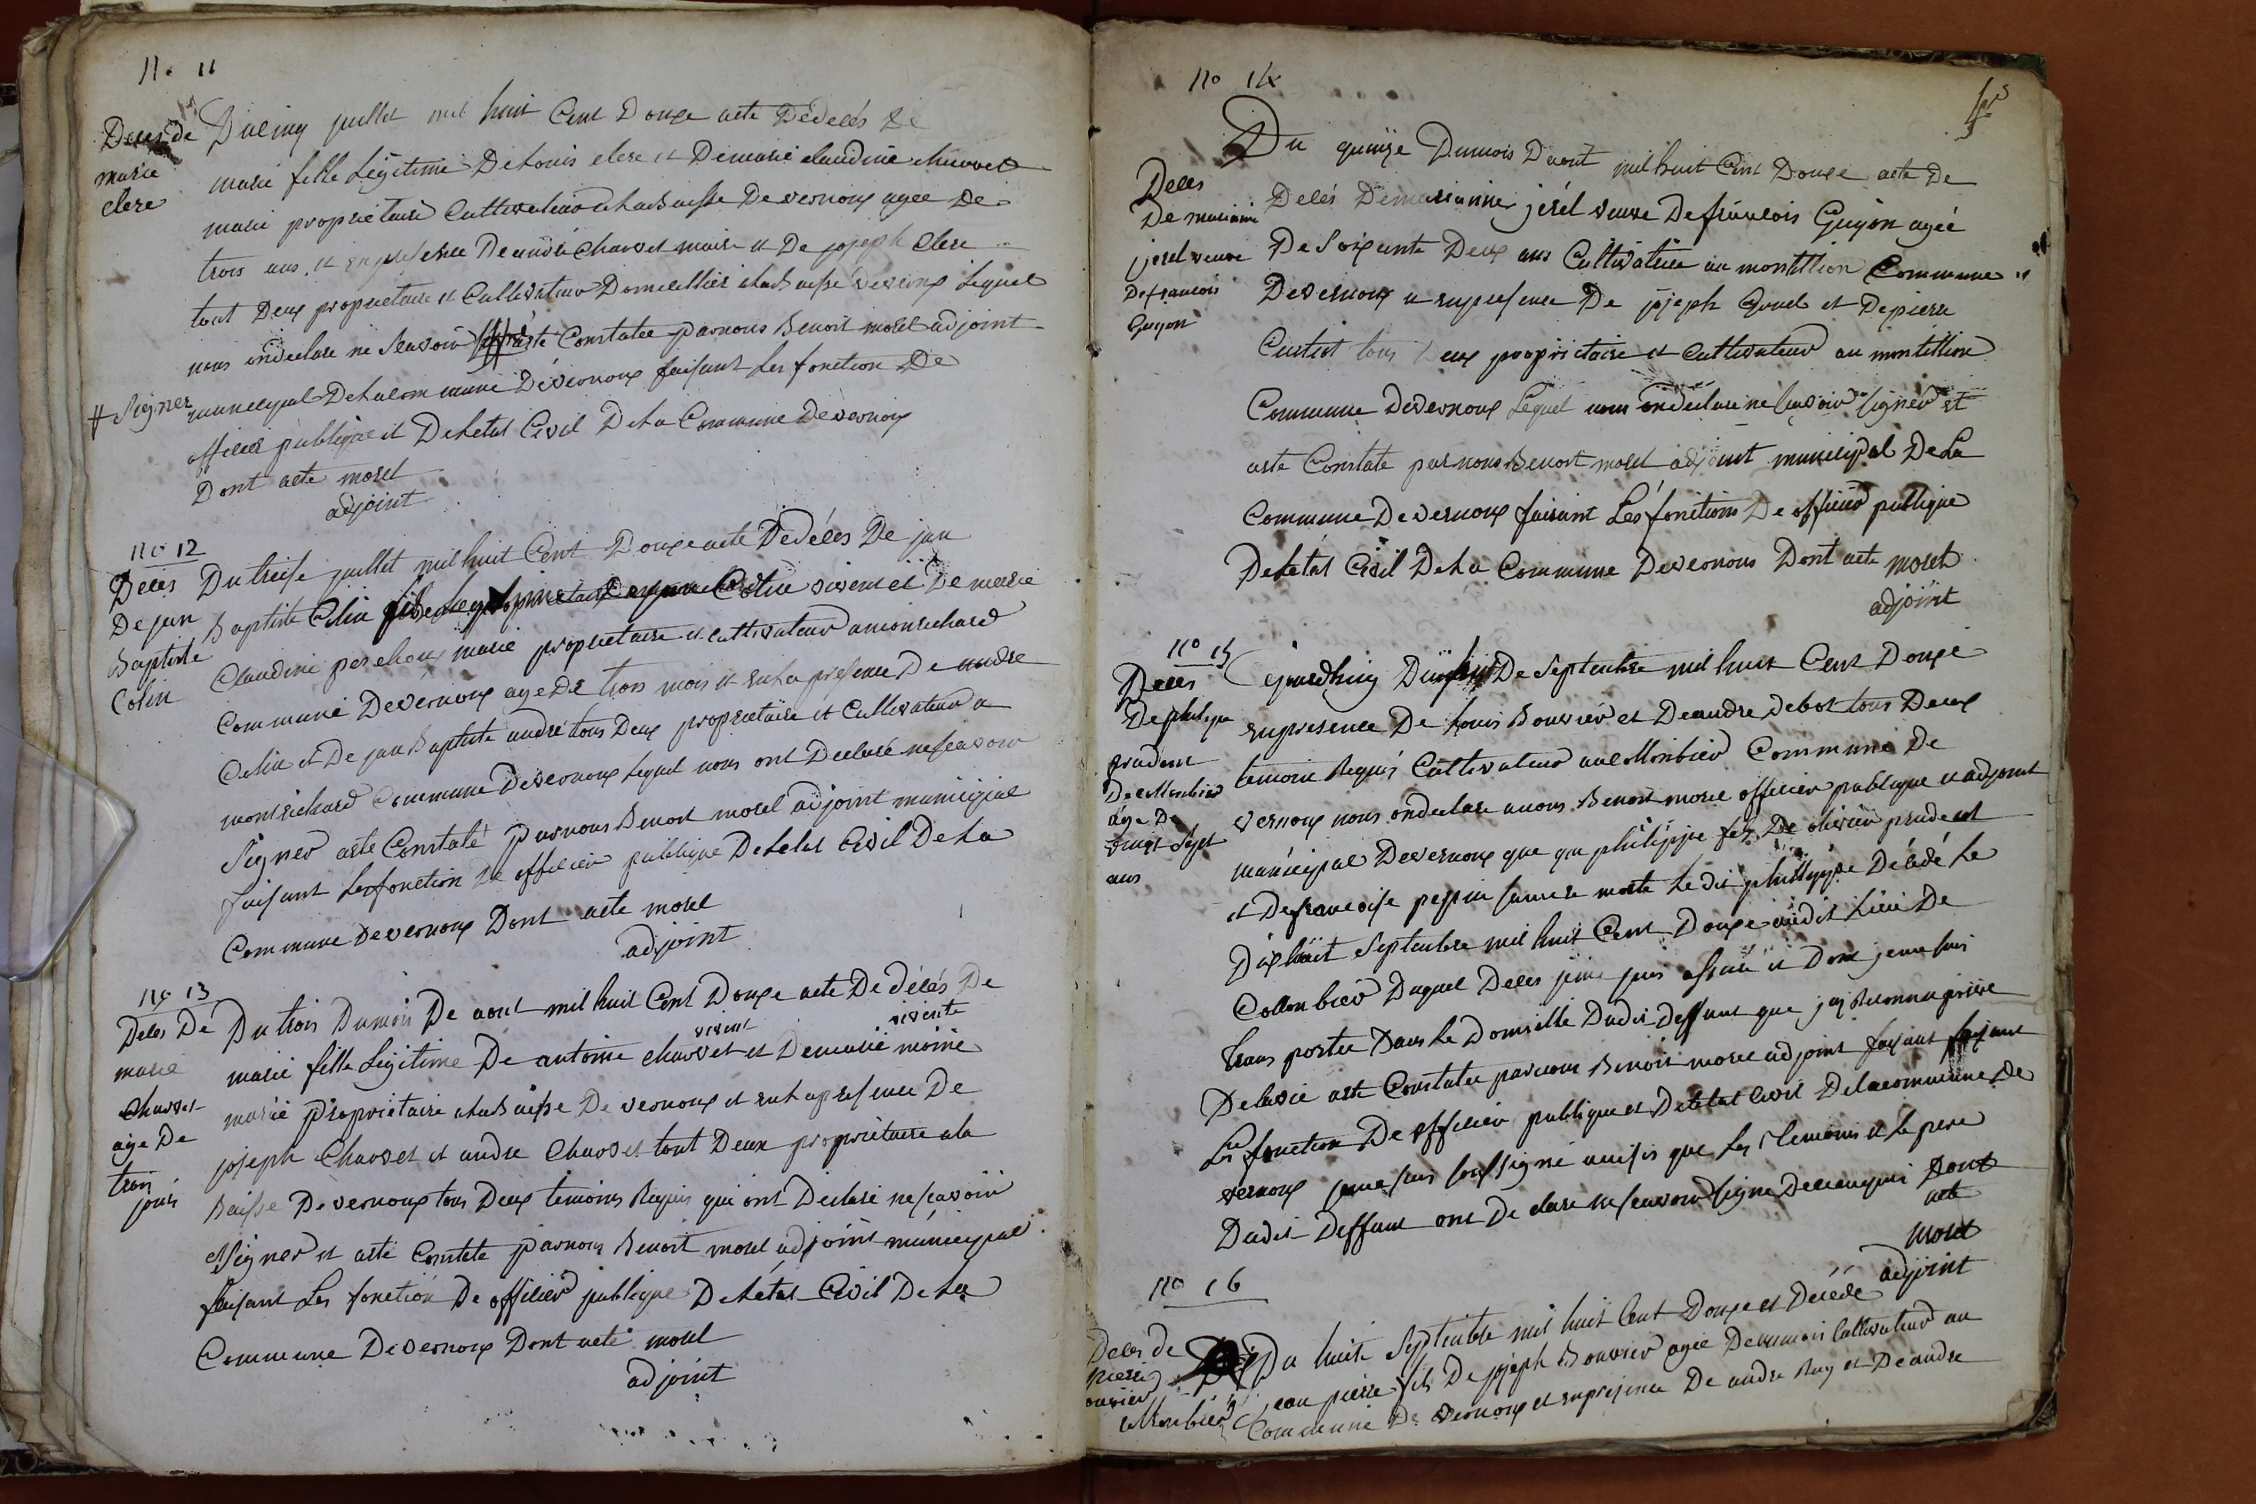 no 11
Deces de
marie
clere
Du cinq juillet mil huit Cent Douze acte De delés De
marie fille Legitime De Louis clere et De marie claudine chauvet
marié propriétaire Cultivateur a La Baisse De vernoux agée De
trois ans et en presence De andré Chauvet maire et De joseph Clere
tout Deux proprietaire et Cultivateur Domicillier a La Baisse vernoux Lequel
nous ondeclare ne Scavoir # acte Constatee par nous Benoit morel adjoint
# Signer
municipal De La commune De vernoux faisant Les fonction De
officier publique et De Letat Civil De La Commune De vernoux
Dont acte morel
adjoint
no 12
Decés
De jan
Baptiste
Colin
Du treise juillet mil huit Cent Douze acte De delés De jan
Baptiste Colin Colin vivent et De marie
Claudine perchoux marié proprietaire et cultivateur a monrichard
Commune De vernoux age De trois mois et en La presence De andre
Colin et De jan Baptiste andré tous Deux proprietaire et Cultivateur a
monrichard Commune De vernoux Lequel nous ont Declaré ne scavoir
Signer acte Constaté par nous Benoit morel adjoint municipal
faisant Les fonction De officier publique De Letat Civil De La
Commune De vernoux Dont acte morel
adjoint
no 13
Deles De
marie
Chauvet
age De
trois
jours
Du trois Du mois De aout mil huit Cent Douze acte De délés De
vivent vivente
marie fille Légitime De antoine chauvet et De marie moine
marié Propriétaire a La Baisse De vernoux et en La presence De
joseph Chauvet et andre Chauvet tout Deux propriétaire a la
Baisse De vernoux tous Deux temoins Requis qui ont Declaré ne scavoir
Signer et acte Constaté par nous Benoit morel adjoint municipal
faisant Les fonction De officier publique De Létat Civil De La
Commune De vernoux Dont acte morel
adjoint
no 14
Deles
De marianne
jerel veuve
De francois
Guyon
Du quinze Du mois D'aout mil huit Cent Douze acte De
Delés De marianne jerel veuve De francois Guyon agée
De Soixante Deux ans Cultivatrice au montillion Commune
De vernoux et en presence De joseph Gonel et De pierre
Curtet tous Deux proprietaire et cultivateur au montillion
Commune De vernoux Lequel nous ondeclare ne scavoir signer et
acte Constate par nous Benoit morel adjoint municipal De La
Commune De vernoux faisant Les fonctions De officier publique
De Letat Civil De La Commune De vernoux Dont acte morel
adjoint
no 15
Deces
De philipe
prudent
age De
vingt Sept
ans
De Septembre mil huit Cent Douze
en presence De Louis Bouvier et De andre debot tous Deux
temoin Requis Cultivateur au Commune De
vernoux nous ondeclare a nous Benoit morel officier publique et adjoint
municipal De vernoux que philippe fils De olivier prudent
et De francoise pepin sa mere morte Le dit philippe Décédé Le
Dix huit Septembre mil huit Cent Douze audit Lieu De
Collonbier Duquel Deces et Dont je me suis
transporter Dans Le Domicille Dudit Deffunt que j'ai Reconnu privé
De la vie acte Constatee par nous Benoit morel adjoint faisant
Les fonction De officier publique et De letat civil De la commune De
vernoux je me suis soussigné ainsis que Les temoins et le pere
Dudit Deffunt ont De clare ne scavoir signe De ce enquis Dont
acte
morel
adjoint
no 16
Deces de
pierre
Du huite Septembre mil huit Cent Douze et Décédé
jean pierre fils De joseph Bouvier agée De un mois Cultivateur au
Commune De vernoux et en presence De andre Ruy et De andre